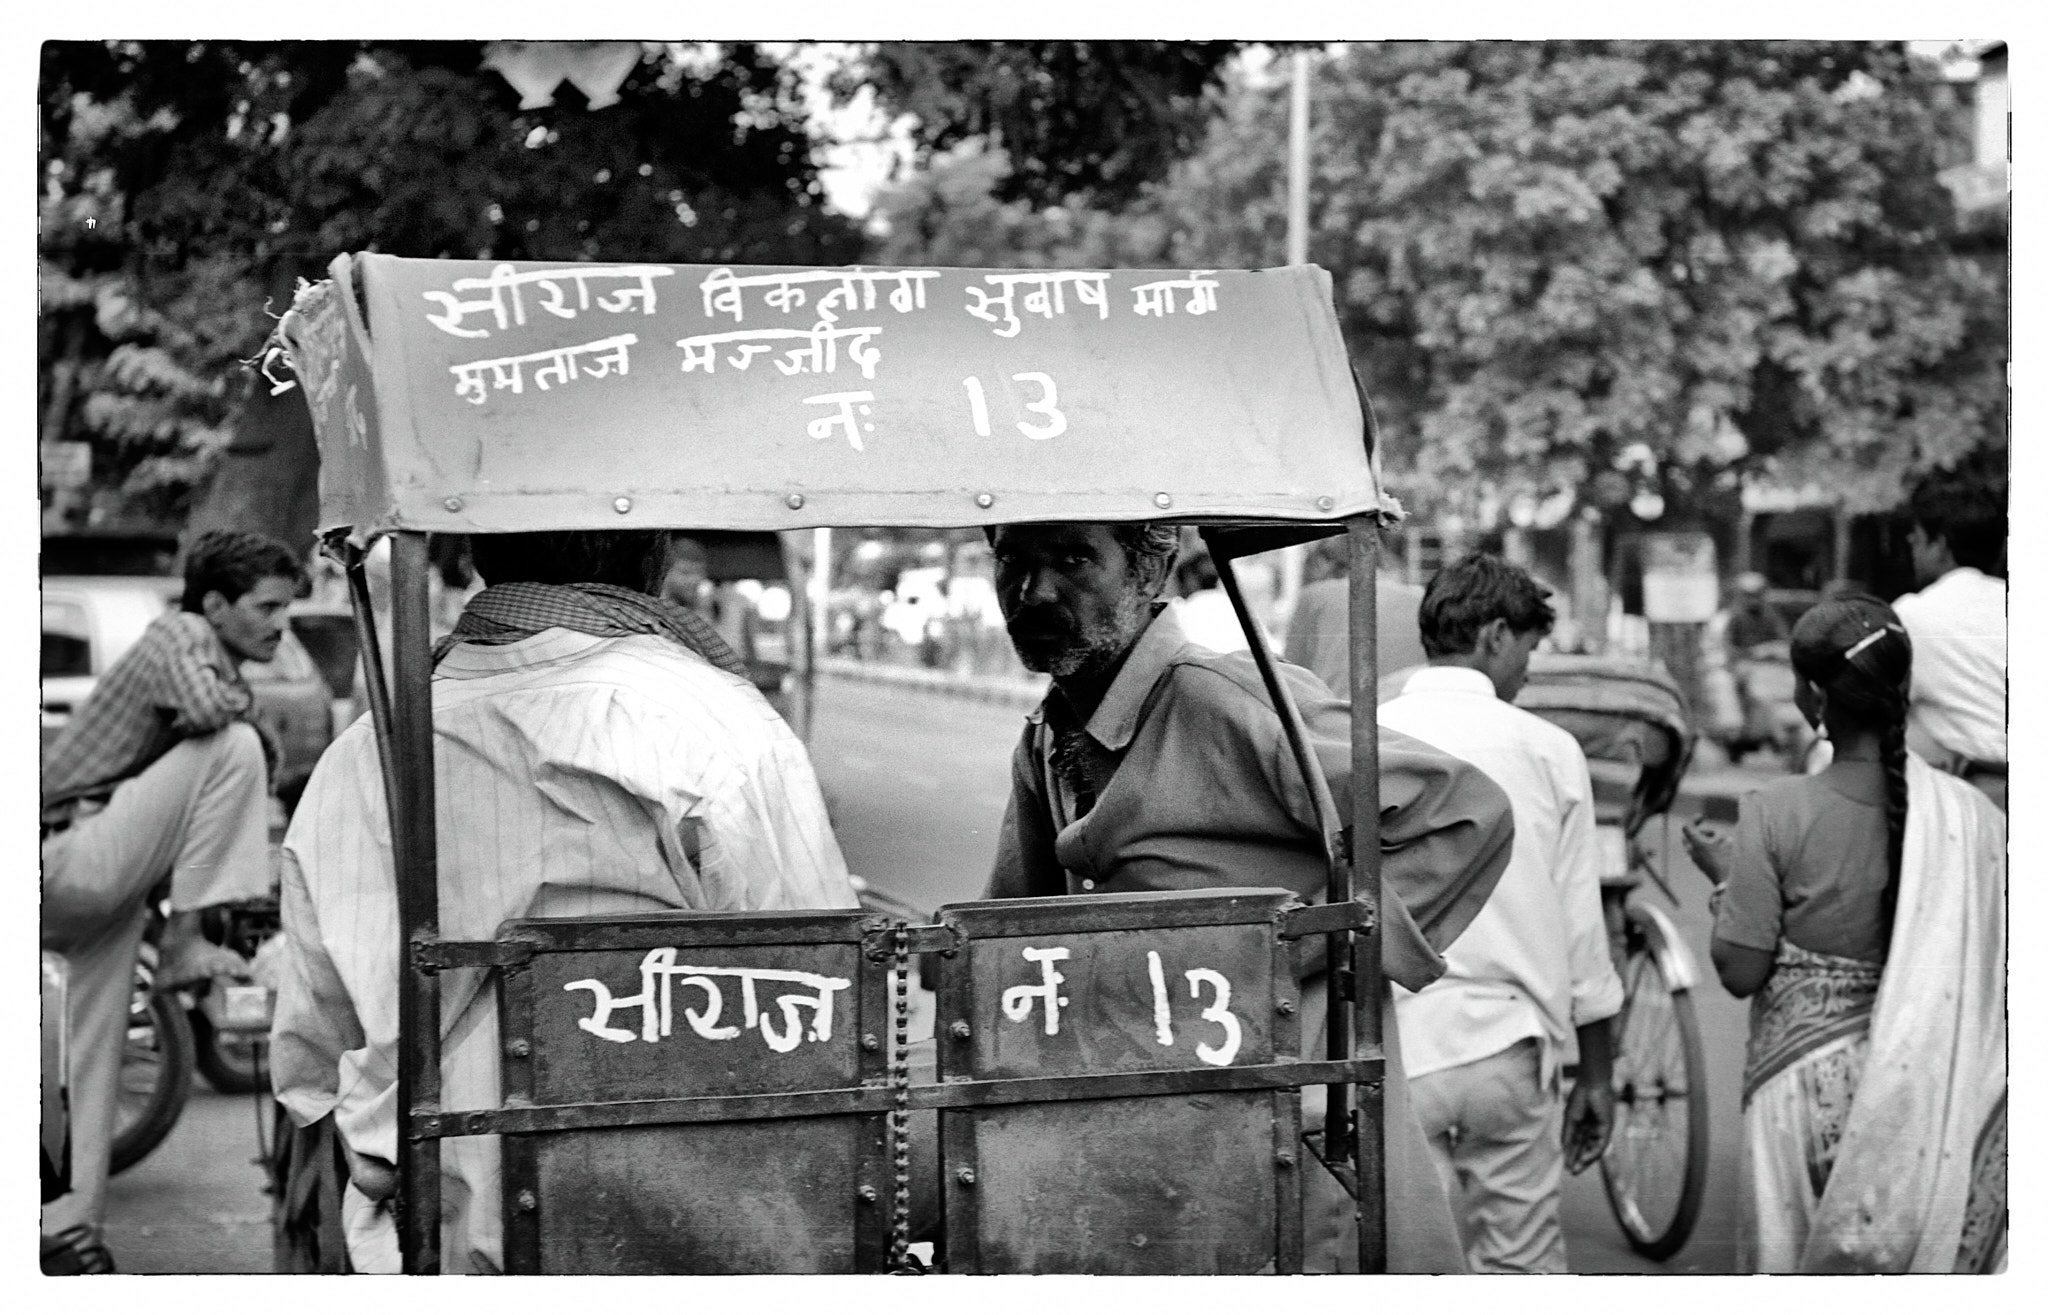 सीराज़ विकलांग सुबाष मार्ग
मुमताज़ मज्ज़ीद
नः 13
सीराज़ नंः 13